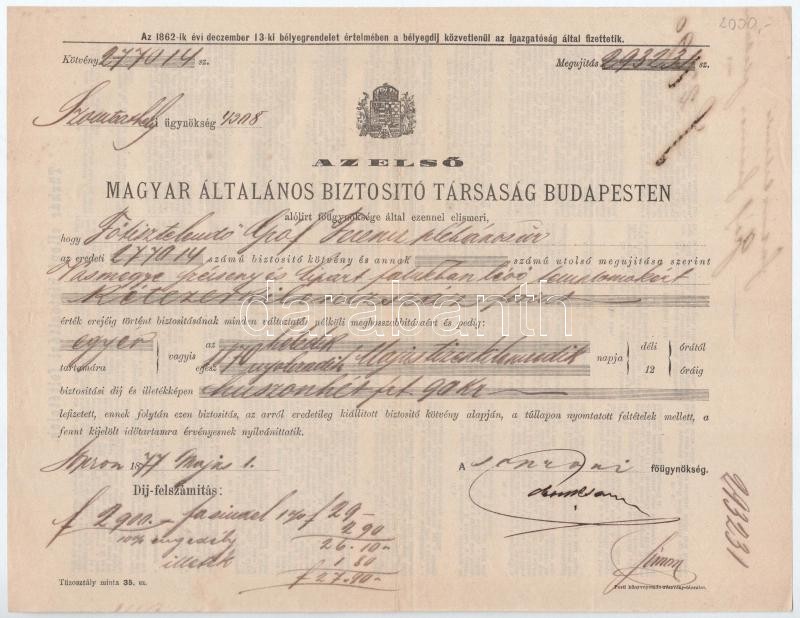 2000,-
Az 1862-ik évi deczember 13-ki bélyegrendelet értelmében a bélyegdij közvetlenül az igazgatóság által fizettetik.
Kötvény 277014 sz.
Megujitás 293231 sz.
Szombathelyi ügynökség 4308
AZ ELSŐ
MAGYAR ÁLTALÁNOS BIZTOSITÓ TÁRSASÁG BUDAPESTEN
alólirt főügynöksége által ezennel elismeri,
hogy Főtisztelendő Gróf Ferencz plébános úr
az eredeti 277014 számú biztositó kötvény és annak számú utolsó megujitása szerint
Vasmegye és falukban lévő templomokért
Kétezer kilencz száz forint
érték erejéig történt biztositásának minden változtatás nélküli meghosszabbitásaért és pedig:
egy év tartamára vagyis az hetedik Május tizenkilenczedik napja déli 12 órától
egész 1878 nyolczadik óráig
biztositási dij és illetékképen huszonhét frt 90 kr
lefizetett, ennek folytán ezen biztositás, az arról eredetileg kiállitott biztositó kötvény alapján, a túllapon nyomtatott feltételek mellett, a
fennt kijelölt időtartamra érvényesnek nyilváníttatik.
Sopron 1877 Május 1.
A soproni főügynökség.
Dij-felszámitás:
f 2900.- fazsindel 1% f 29-
10% engedély 2 90
26.10-
illeték 1 80
f 27.90-
Simon
293231
Tűzosztály minta 35. sz.
Pesti könyvnyomda-részvény-társulat.
darabanth